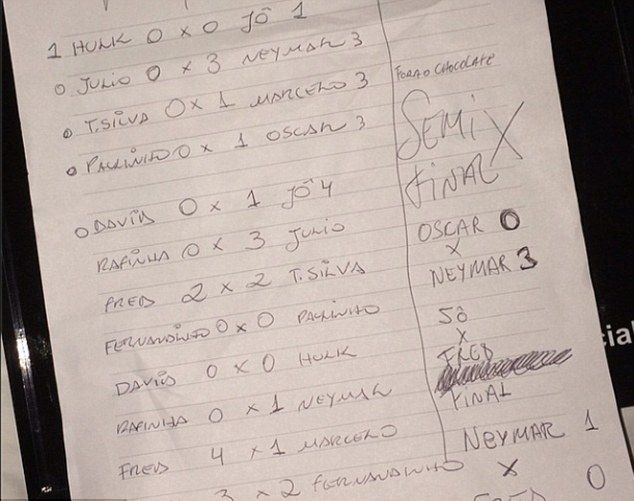 1 HULK 0 X 0 JÔ 1
0 JULIO 0 X 3 NEYMAR 3
0 T.SILVA 0 X 1 MARCELO 3
0 PAULINHO 0 X 1 OSCAR 3
0 DAVID 0 X 1 JÔ 4
RAFINHA 0 X 3 JULIO
FRED 2 X 2 T.SILVA
FERNANDINHO 0 X 0 PAULINHO
DAVID 0 X 0 HULK
RAFINHA 0 X 1 NEYMAR
FRED 4 X 1 MARCELO
3 X 2 FERNANDINHO
FORA O CHOCOLATE
SEMI X
FINAL
OSCAR 0
X
NEYMAR 3
JÔ
X
FRED
FINAL
NEYMAR 1
X
FRED 0
cial